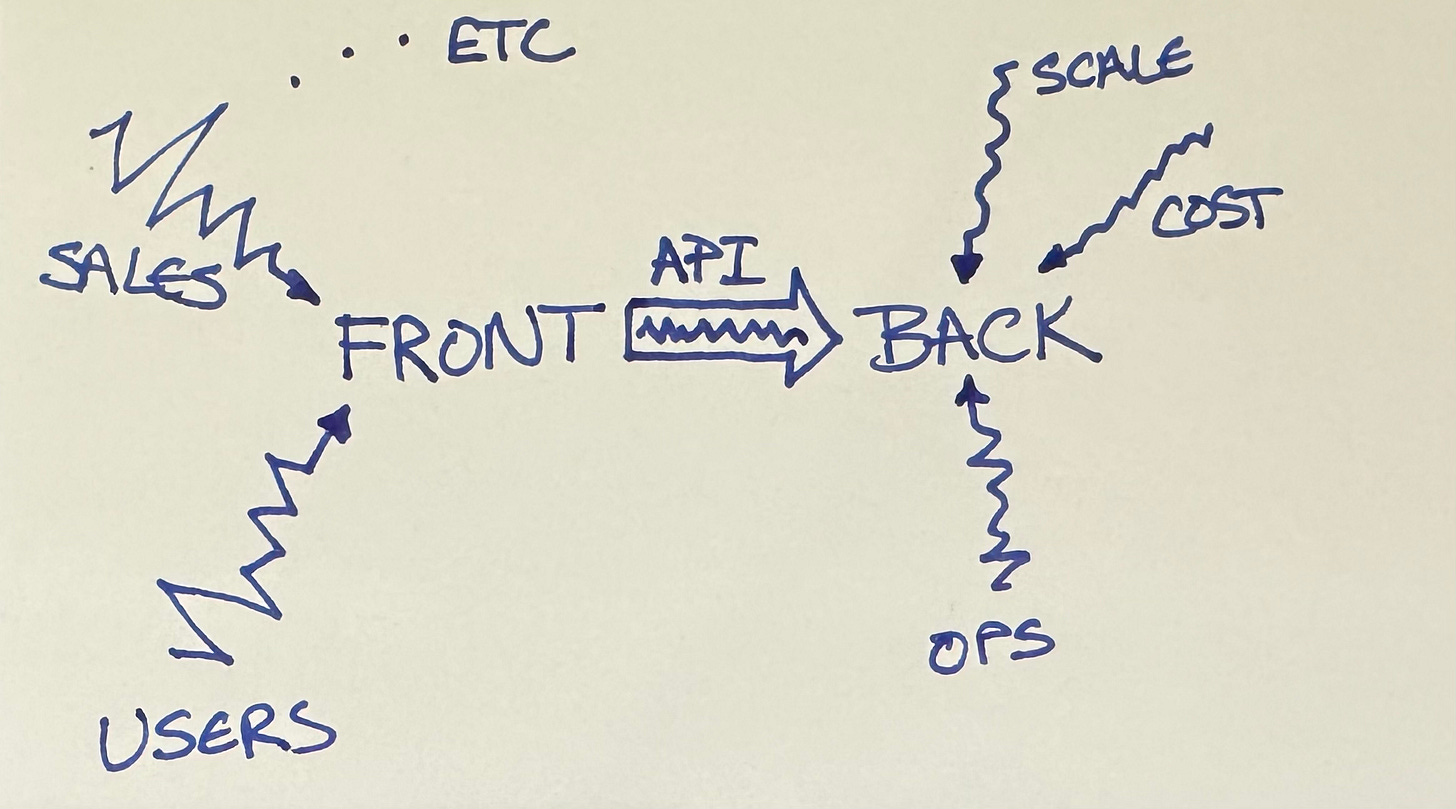 ETC
SCALE
COST
SALES
API
FRONT
BACK
OPS
USERS